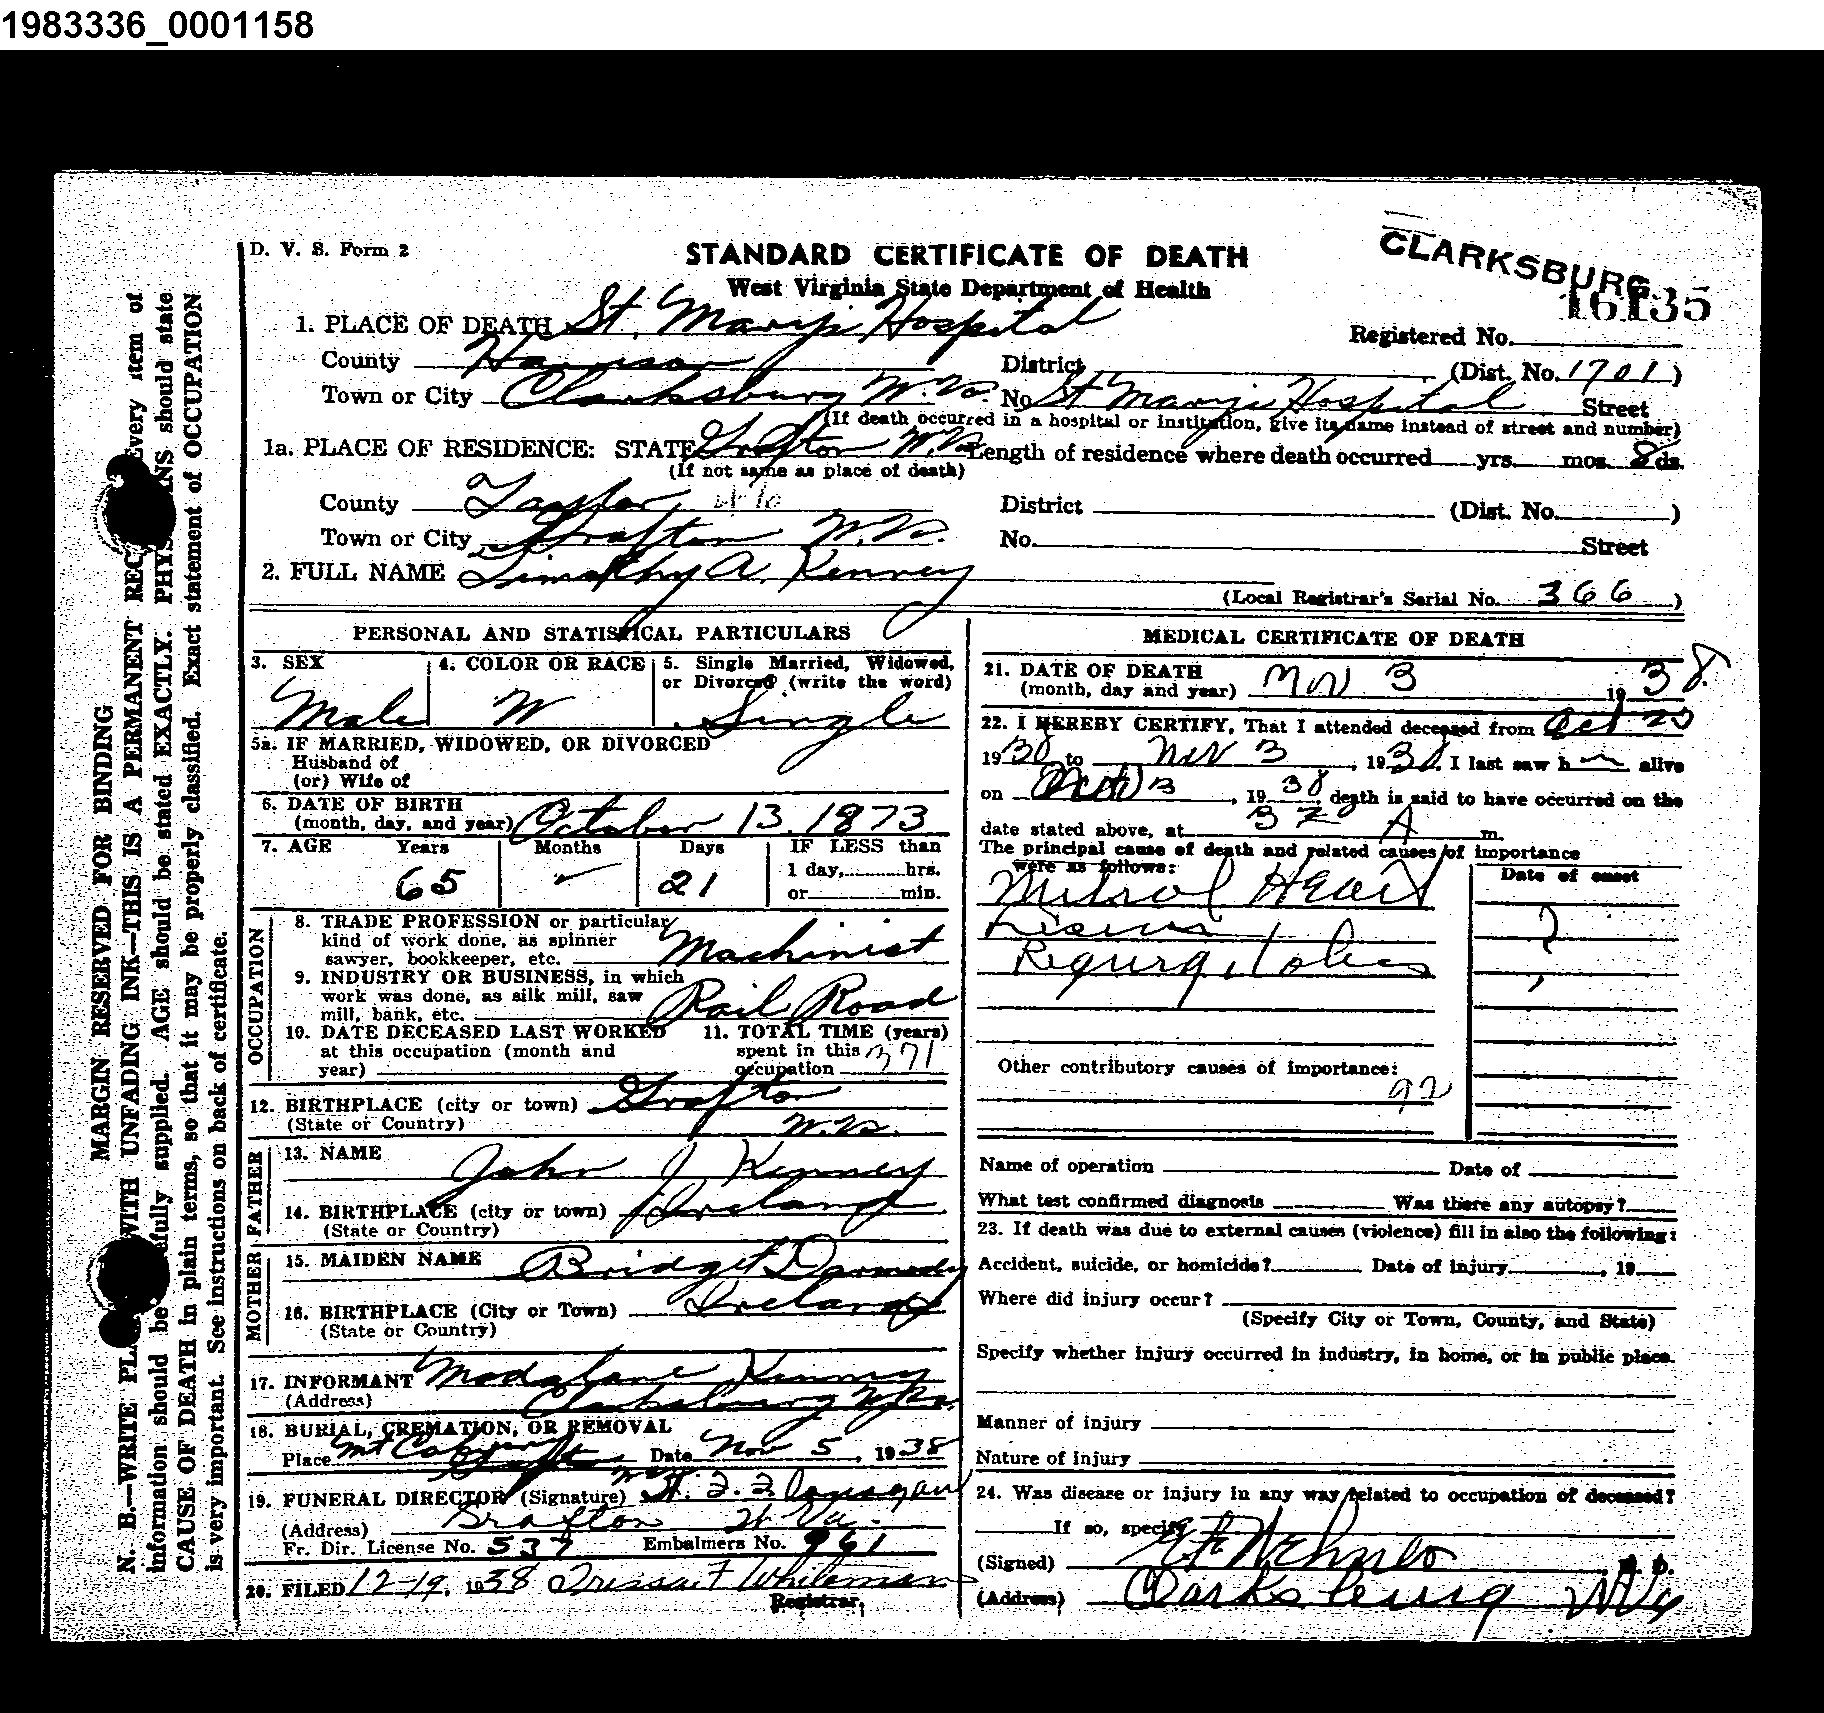 1983336_0001158
D. V. S. Form 2
STANDARD CERTIFICATE OF DEATH
CLARKSBURG
West Virginia State Department of Health
16135
1. PLACE OF DEATH St. Mary's Hospital
Registered No.
County Harrison District (Dist. No. 1701)
Town or City Clarksburg W. Va. No St Mary's Hospital Street
(If death occurred in a hospital or institution, give its name instead of street and number)
1a. PLACE OF RESIDENCE: STATE Grafton W. Va Length of residence where death occurred yrs. mos. 8 ds.
(If not same as place of death)
County Taylor District (Dist. No. )
Town or City Grafton W. Va. No. Street
2. FULL NAME Timothy A. Kenney
(Local Registrar's Serial No. 366 )
PERSONAL AND STATISTICAL PARTICULARS
3. SEX Male
4. COLOR OR RACE W
5. Single Married, Widowed, or Divorced (write the word) Single
5a. IF MARRIED, WIDOWED, OR DIVORCED
Husband of
(or) Wife of
6. DATE OF BIRTH
(month, day, and year) October 13. 1873
7. AGE Years Months Days IF LESS than
65 21 1 day, hrs.
or min.
OCCUPATION
8. TRADE PROFESSION or particular
kind of work done, as spinner
sawyer, bookkeeper, etc. Machinist
9. INDUSTRY OR BUSINESS, in which
work was done, as silk mill, saw
mill, bank, etc. Rail Road
10. DATE DECEASED LAST WORKED
at this occupation (month and
year)
11. TOTAL TIME (years)
spent in this
occupation 371
12. BIRTHPLACE (city or town) Grafton
(State or Country) W. Va.
FATHER
13. NAME John J Kenney
14. BIRTHPLACE (city or town) Ireland
(State or Country)
MOTHER
15. MAIDEN NAME Bridget
16. BIRTHPLACE (City or Town) Ireland
(State or Country)
17. INFORMANT Madalane Kenney
(Address) Clarksburg W. Va.
18. BURIAL, CREMATION, OR REMOVAL
Place Mt Calvary Grafton Date Nov 5, 1938
19. FUNERAL DIRECTOR (Signature)
(Address) Grafton W. Va.
Fr. Dir. License No. 537 Embalmers No. 961
20. FILED 12-19, 1938 Whiteman
Registrar.
MEDICAL CERTIFICATE OF DEATH
21. DATE OF DEATH
(month, day and year) Nov 3 1938.
22. I HEREBY CERTIFY, That I attended deceased from Oct 25
1938 to Nov 3, 1938. I last saw h alive
on Nov 3, 1938, death is said to have occurred on the
date stated above, at 320 A m.
The principal cause of death and related causes of importance
were as follows:
Date of onset
Mitral Heart
Disease
Regurgitation
?
Other contributory causes of importance:
92
Name of operation Date of
What test confirmed diagnosis Was there any autopsy?
23. If death was due to external causes (violence) fill in also the following:
Accident, suicide, or homicide? Date of injury , 19
Where did injury occur?
(Specify City or Town, County, and State)
Specify whether injury occurred in industry, in home, or in public place.
Manner of injury
Nature of injury
24. Was disease or injury in any way related to occupation of deceased?
If so, specify
(Signed) M. D.
(Address) Clarksburg W Va
MARGIN RESERVED FOR BINDING
N. B.—WRITE WITH UNFADING INK—THIS IS A PERMANENT Every item of
information should be supplied. AGE should be stated EXACTLY. should state
CAUSE OF DEATH in plain terms, so that it may be properly classified. Exact statement of OCCUPATION
is very important. See instructions on back of certificate.